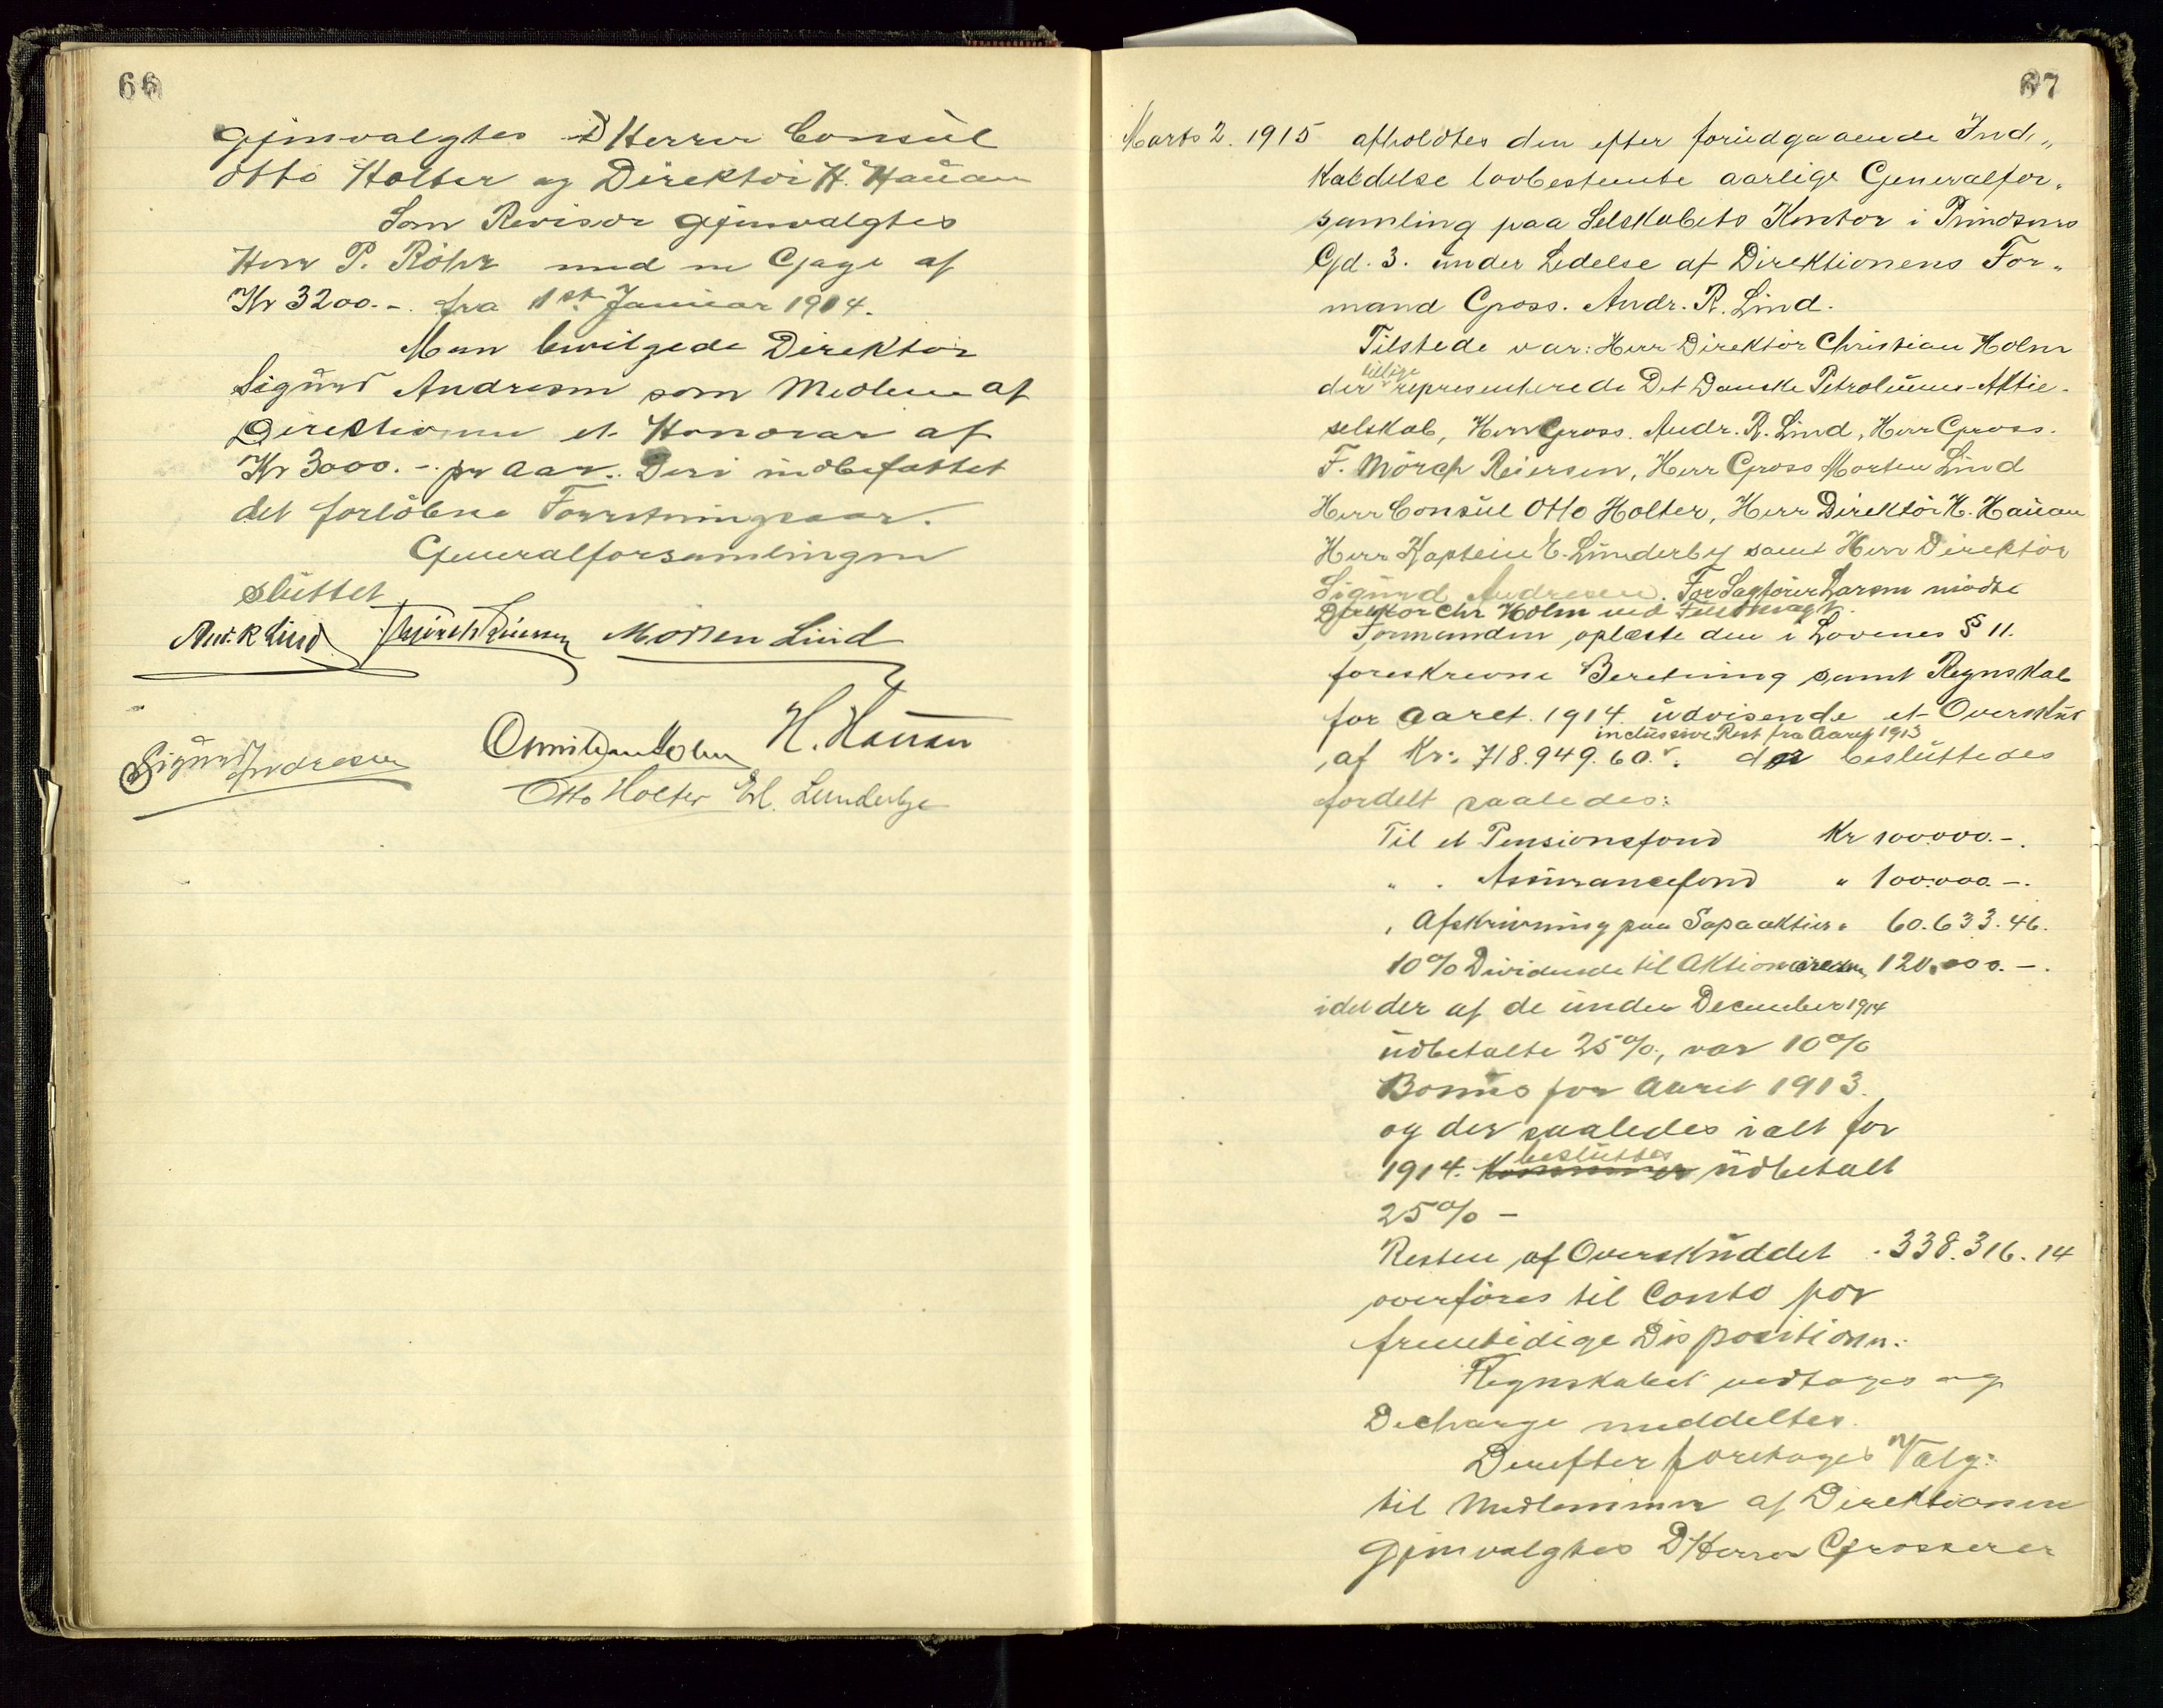 66
gjenvalgtes D'Herrer Consul
Otto Holter og Direktør H. Hauan
Som Revisor gjenvalgtes
Herr P. Röhr med en Gage af
Kr 3200.-. fra 1ste Januar 1914.
Man bevilgede Direktør
Sigurd Andresen som Medlem af
Direktionen et Honorar af
Kr 3000.-. pr Aar. Deri indbefattet
det forløbne Forretningsaar.
Generalforsamlingen
sluttet
Andr. R. Lind F Mörch Reiersen Morten Lind
Christian Holm H. Hauan
Sigurd Andresen
Otto Holter E. Lunderby
67
Marts 2. 1915 afholdtes den efter forudgaaende Ind„
kaldelse lovbestemte aarlige Generalfor„
samling paa Selskabets Kontor i Prindsens
Gd. 3. under Ledelse af Direktionens For„
mand Gross. Andr. R. Lind.
Tilstede var: Herr Direktør Christian Holm
der tillige representerede Det Danske Petroleums-Aktie-
selskab, Herr Gross. Andr. R. Lind, Herr Gross.
F. Mörch Reiersen, Herr Gross Morten Lind
Herr Consul Otto Holter, Herr Direktör H. Hauan
Herr Kaptein E. Lunderby samt Herr Direktör
Sigurd Andresen. For Sagförer Larsen mödte
Direktör Chr Holm ved Fuldmagt.
Formanden oplæste den i Lovenes § 11.
foreskrevne Beretning samt Regnskab
for Aaret 1914 udvisende et Overskud
inclusive Rest fra Aaret 1913
af Kr: 718.949.60. der besluttedes
fordelt saaledes:
Til et Pensionsfond Kr 100000.-.
" . Assurancefond " 100.000.-.
, Afskrivning paa Sapaaktier " 60.633.46.
10% Dividende til Aktionærerne 120.000.-.
idet der af de under December 1914
udbetalte 25%, var 10%
Bonus for Aaret 1913.
og der saaledes ialt for
1914. kommer besluttes udbetalt
25% -
Resten af Overskuddet . 338.316.14
overføres til Conto for
fremtidige Dispositioner.
Regnskabet vedtoges og
Decharge meddeltes.
Derefter foretoges Valg:
til Medlemmer af Direktionen
gjenvalgtes D'Herrer Grosserer